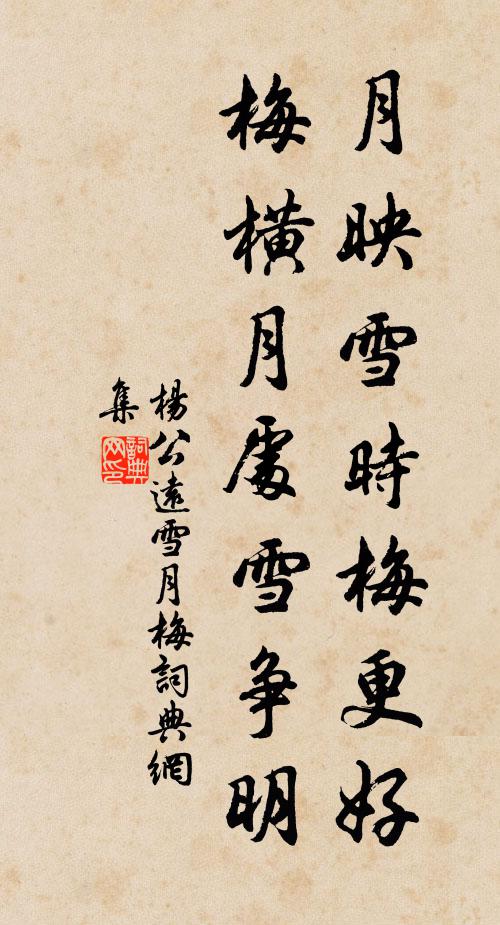 月映雪時梅更好
梅橫月處雪争明
楊公遠雪月梅詞典網
集
詞典网印